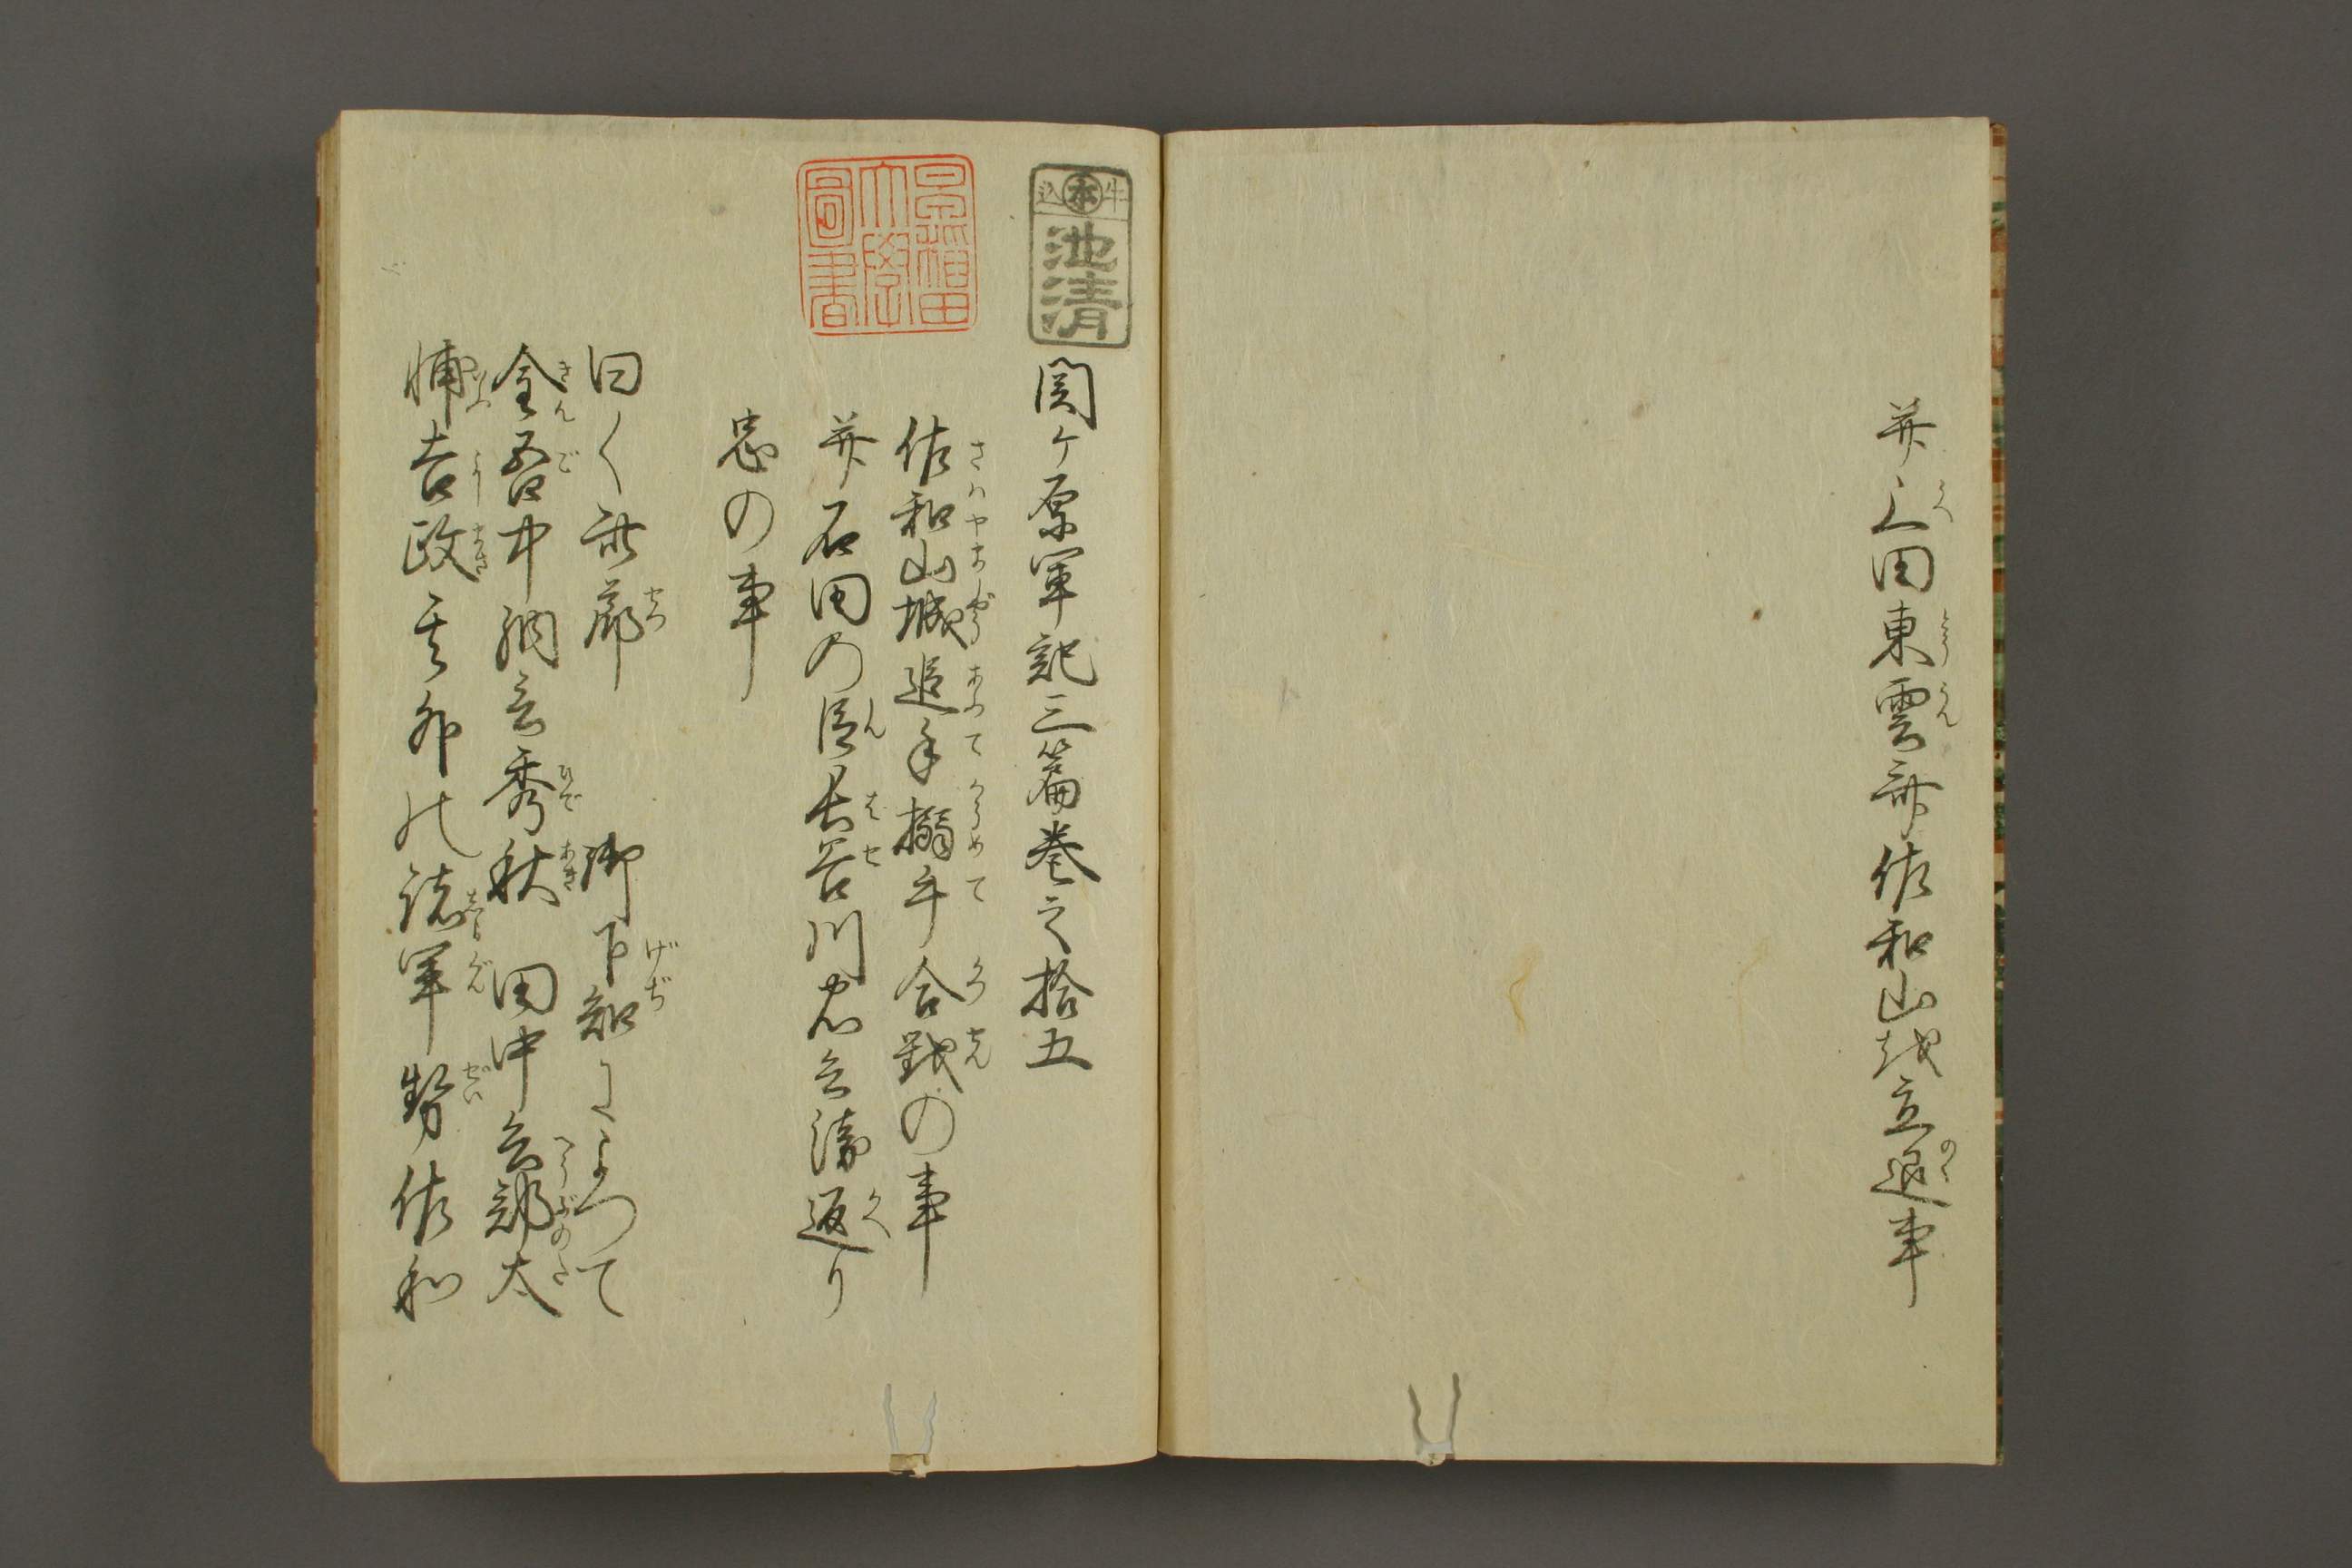 并上田東雲斎佐和山を立退事
牛込
本
池清
早稲田大學圖書
関ヶ原軍記三篇巻之拾五
佐和山城追手搦手合戦の事
并石田の臣長谷川宇兵衛返り
忠の事
曰く斯て 御下知によつて
金吾中納言秀秋田中兵部太
輔吉政其外の諸軍勢佐和